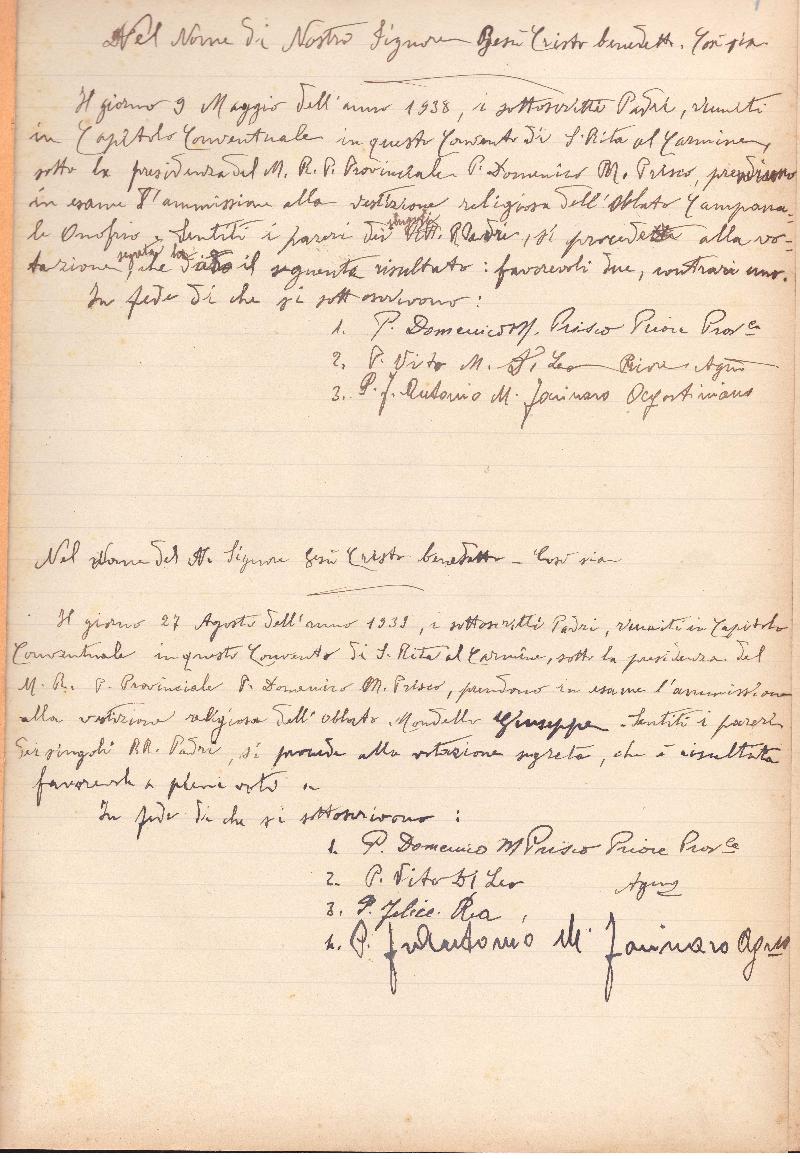 Nel Nome di Nostro Signore Gesù Cristo benedetto. Così sia
Il giorno 9 Maggio dell'anno 1938, i sottoscritti Padri, riuniti
in Capitolo Conventuale in questo Convento di S. Rita al Carmine,
sotto la presidenza del M. R. P. Provinciale P. Domenico M. Prisco, prendono
in esame l'ammissione alla vestizione religiosa dell'Oblato Campana-
le Onofrio. Sentiti i pareri dei singoli RR. Padri, si procede alla vo-
tazione segreta che ha dato il seguente risultato: favorevoli due, contrari uno.
In fede di che si sottoscrivono:
1. P. Domenico M. Prisco Priore Prov.le
2. P. Vito M. Di Leo Priore Agno
3. P. F. Antonio M. Jannaro Agostiniano
Nel Nome del N. Signore Gesù Cristo benedetto – Così sia
Il giorno 27 Agosto dell'anno 1939, i sottoscritti Padri, riuniti in Capitolo
Conventuale in questo Convento di S. Rita al Carmine, sotto la presidenza del
M. R. P. Provinciale P. Domenico M. Prisco, prendono in esame l'ammissione
alla vestizione religiosa dell'oblato Mondello Giuseppe. Sentiti i pareri
dei singoli RR. Padri, si procede alla votazione segreta, che è risultata
favorevole a pieni voti
In fede di che si sottoscrivono:
1. P. Domenico M Prisco Priore Prov.le
2. P. Vito Di Leo Agno
3. P. Felice Rea
4. P. Antonio M. Jannaro Agno